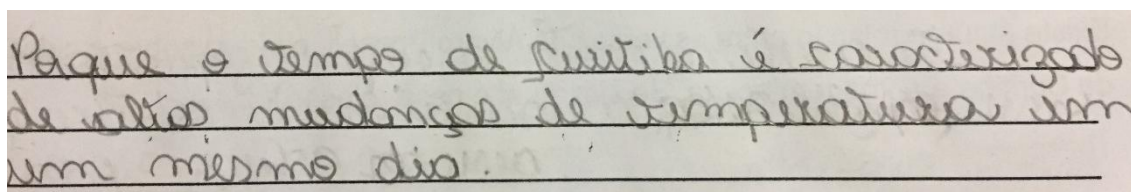 Porque o tempo de Curitiba é caracterizado
de altas mudanças de temperatura em
um mesmo dia.